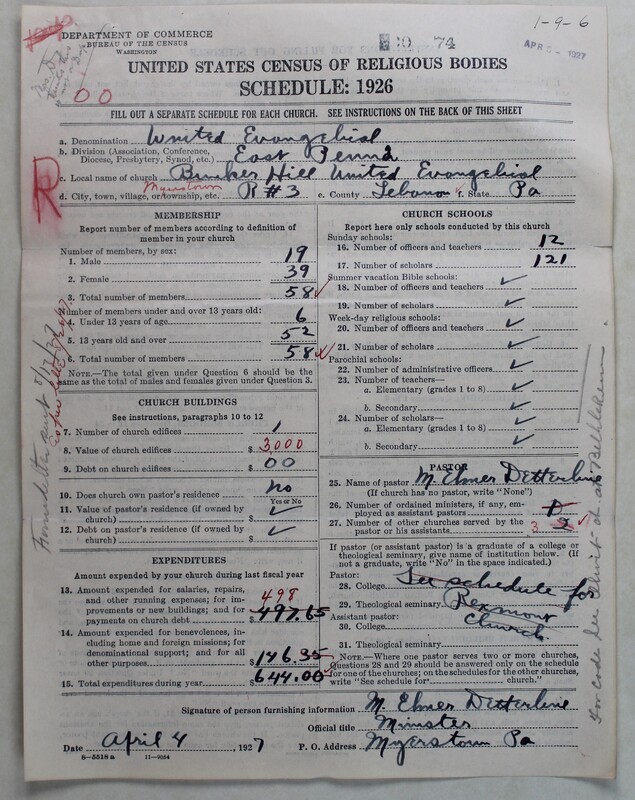 1-9-6
DEPARTMENT OF COMMERCE
BUREAU OF THE CENSUS
WASHINGTON
74
APR 1927
UNITED STATES CENSUS OF RELIGIOUS BODIES
SCHEDULE: 1926
00
FILL OUT A SEPARATE SCHEDULE FOR EACH CHURCH. SEE INSTRUCTIONS ON THE BACK OF THIS SHEET
R
a. Denomination United Evangelical
b. Division (Association, Conference, Diocese, Presbytery, Synod, etc.) East Penna
c. Local name of church Bunker Hill United Evangelical
d. City, town, village, or township, etc. Myerstown R #3 e. County Lebanon f. State Pa
MEMBERSHIP
Report number of members according to definition of
member in your church
Number of members, by sex:
1. Male 19
2. Female 39
3. Total number of members 58
Number of members under and over 13 years old:
4. Under 13 years of age 6
5. 13 years old and over 52
6. Total number of members 58
NOTE.—The total given under Question 6 should be the
same as the total of males and females given under Question 3.
CHURCH BUILDINGS
See instructions, paragraphs 10 to 12
7. Number of church edifices 1
8. Value of church edifices $ 3,000
9. Debt on church edifices $ 00
10. Does church own pastor's residence? No
Yes or No
11. Value of pastor's residence (if owned by
church) $ ✓
12. Debt on pastor's residence (if owned by
church) $ ✓
EXPENDITURES
Amount expended by your church during last fiscal year
13. Amount expended for salaries, repairs,
and other running expenses; for im-
provements or new buildings; and for
payments on church debt $ 498 497.65
14. Amount expended for benevolences, in-
cluding home and foreign missions; for
denominational support; and for all
other purposes 146.35
15. Total expenditures during year $ 644.00
CHURCH SCHOOLS
Report here only schools conducted by this church
Sunday schools:
16. Number of officers and teachers 12
17. Number of scholars 121
Summer vacation Bible schools:
18. Number of officers and teachers ✓
19. Number of scholars ✓
Week-day religious schools:
20. Number of officers and teachers ✓
21. Number of scholars ✓
Parochial schools:
22. Number of administrative officers ✓
23. Number of teachers—
a. Elementary (grades 1 to 8) ✓
b. Secondary ✓
24. Number of scholars—
a. Elementary (grades 1 to 8) ✓
b. Secondary ✓
PASTOR
25. Name of pastor M. Elmer Detterline
(If church has no pastor, write "None")
26. Number of ordained ministers, if any, em-
ployed as assistant pastors
27. Number of other churches served by the
pastor or his assistants 3 2
If pastor (or assistant pastor) is a graduate of a college or
theological seminary, give name of institution below. (If
not a graduate, write "No" in the space indicated.)
Pastor:
28. College See schedule for
29. Theological seminary Rexmont
Assistant pastor: Church
30. College
31. Theological seminary
NOTE.—Where one pastor serves two or more churches,
Questions 28 and 29 should be answered only on the schedule
for one of the churches; on the schedules for the other churches,
write "See schedule for church."
For code see Christ ch at Bethlehem
Signature of person furnishing information M. Elmer Detterline
Official title Minister
Date April 4, 1927 P. O. Address Myerstown Pa
8—5518a 11—9054